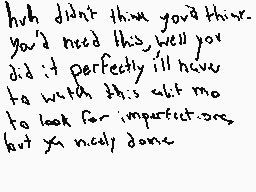 huh didn't think you'd think.
you'd need this, well you
did it perfectly i'll have
to watch this abit mo
to look for imperfections,
but ya nicely done